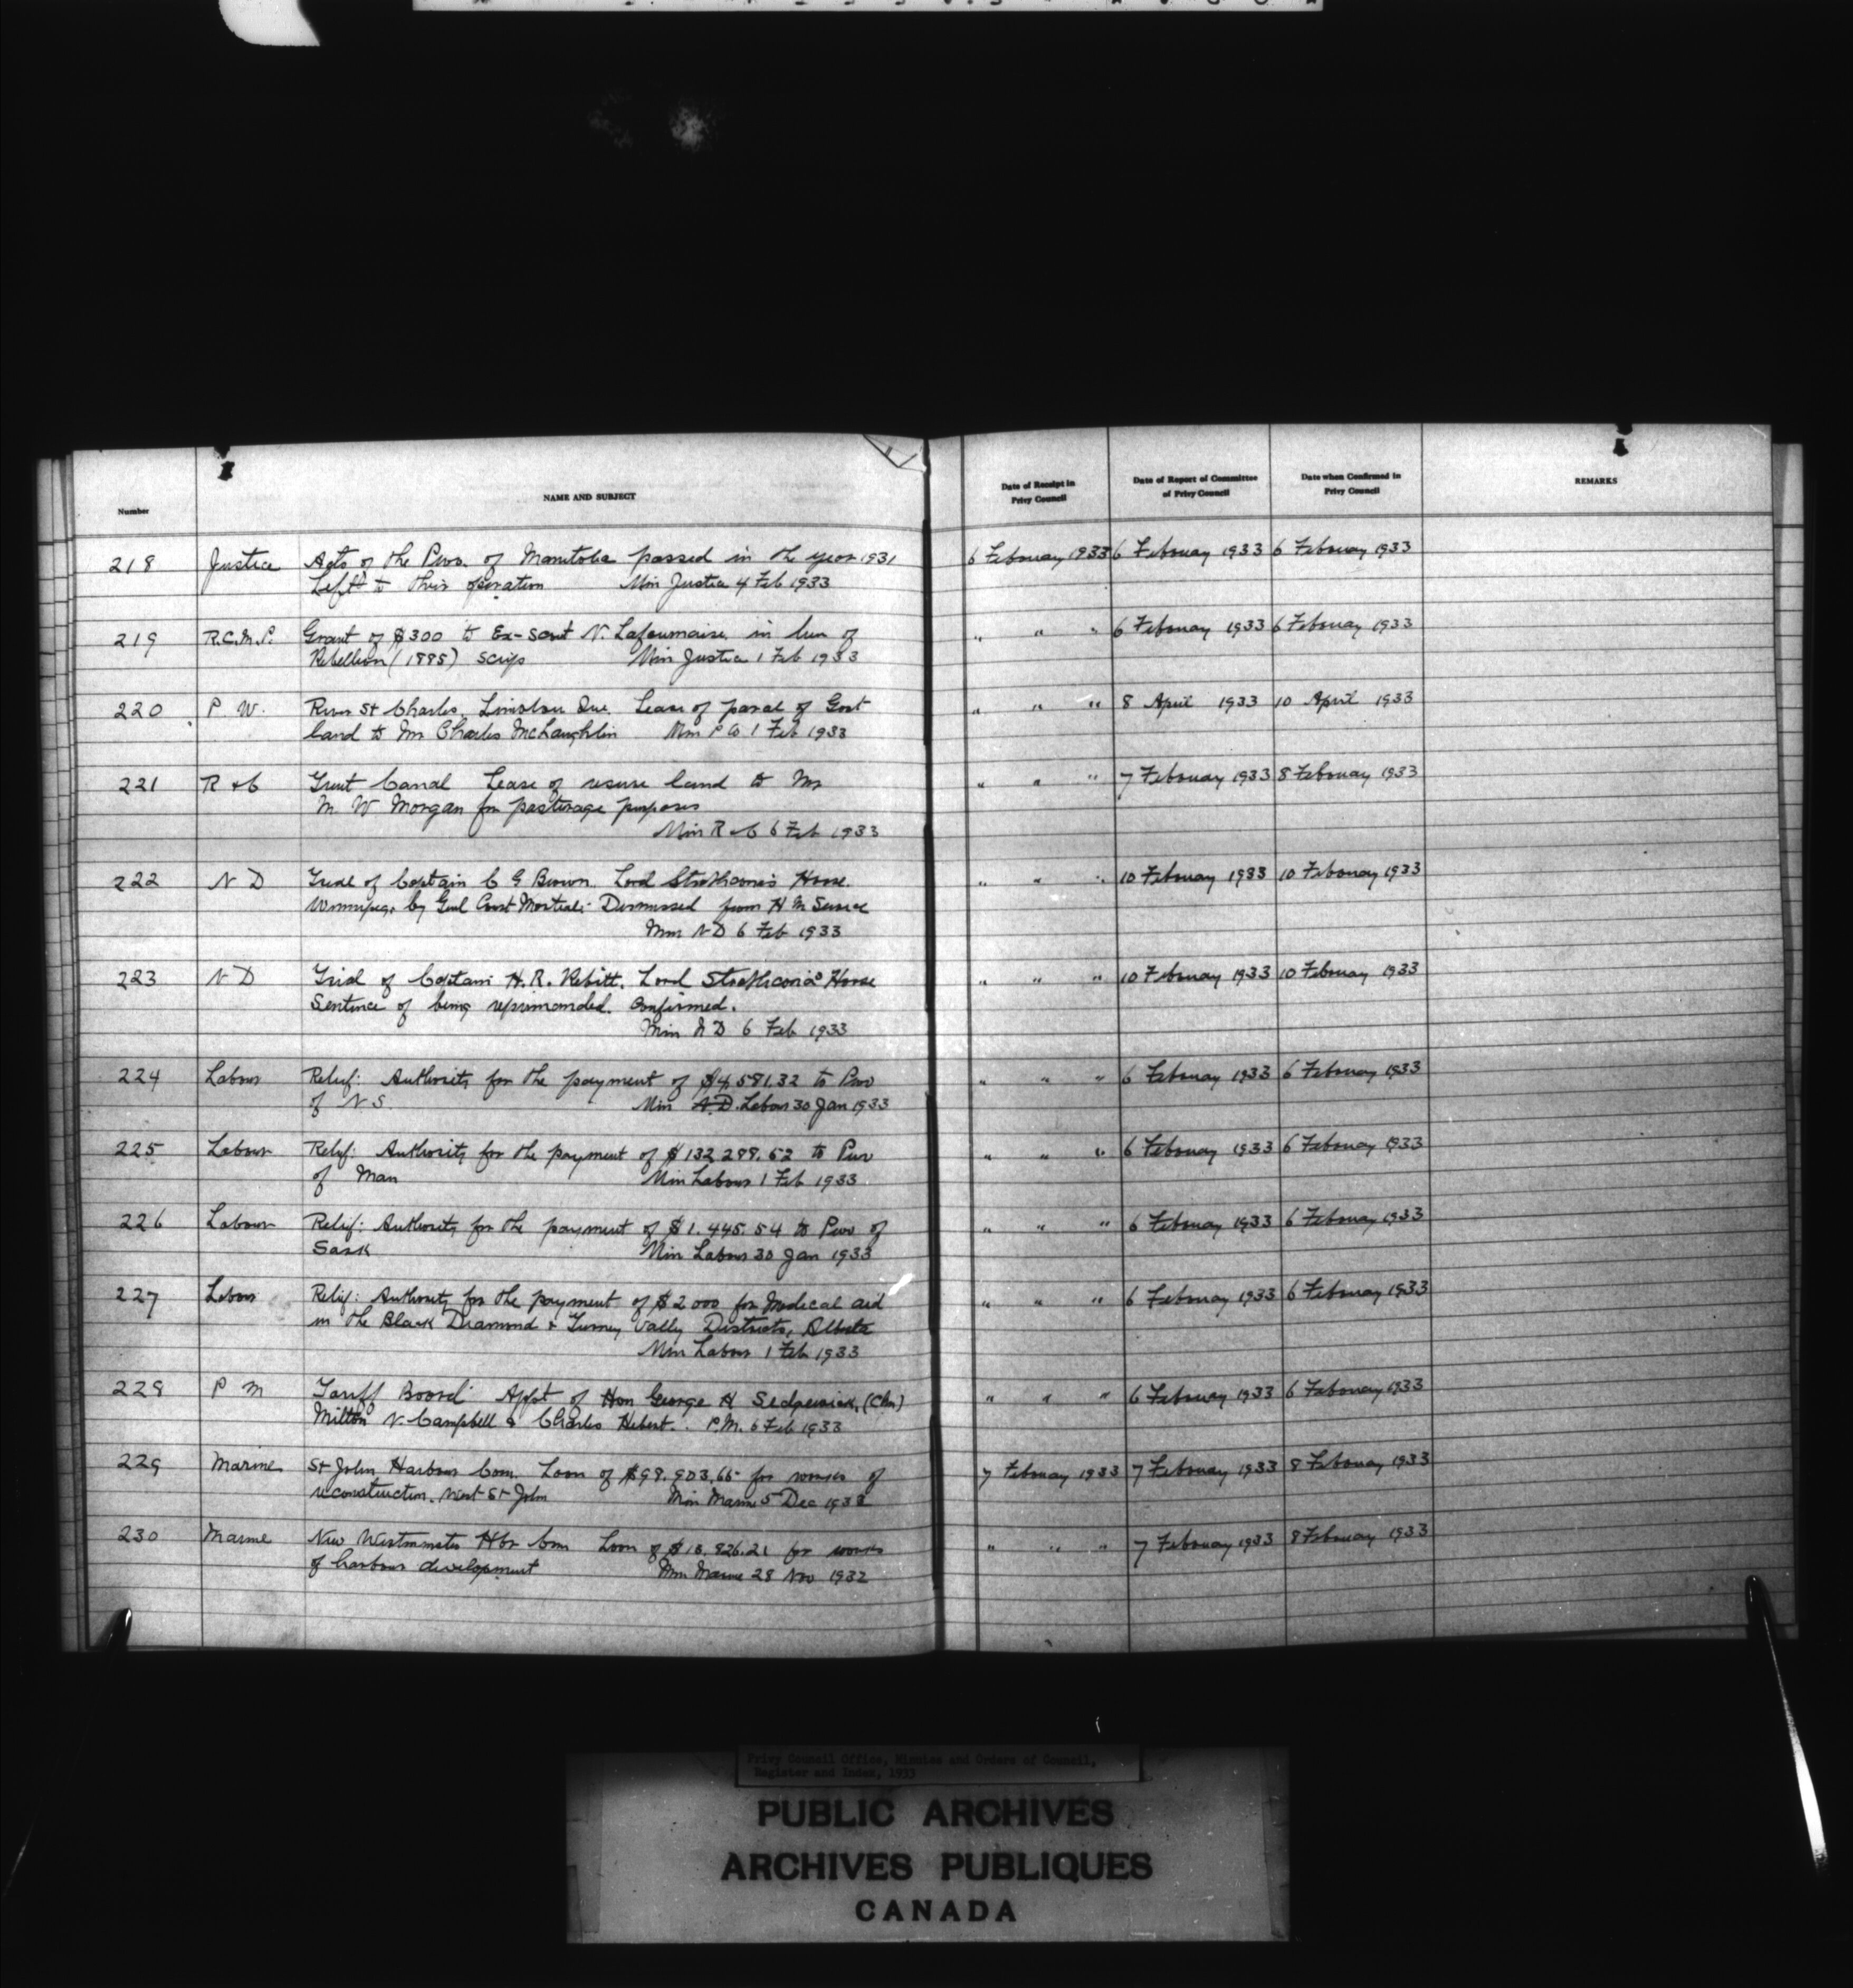 Number
NAME AND SUBJECT
Date of Receipt in Privy Council
Date of Report of Committee of Privy Council
Date when Confirmed in Privy Council
REMARKS
218 Justice Acts of the Prov. of Manitoba passed in the year 1931 6 February 1933 6 February 1933 6 February 1933
Left to their operation Min Justice 4 Feb 1933
219 R.C.M.P. Grant of $300 to Ex-Scout N. Lafournaise in lieu of " " " 6 February 1933 6 February 1933
Rebellion (1885) Scrip Min Justice 1 Feb 1933
220 P W. River St Charles, Que. Lease of parcel of Govt " " " 8 April 1933 10 April 1933
land to Mr Charles McLaughlin Min P W 1 Feb 1933
221 R & C Trent Canal Lease of reserve land to Mr " " " 7 February 1933 8 February 1933
M. W Morgan for pasturage purposes
Min R & C 6 Feb 1933
222 N D Trial of Captain C G Brown. Lord Strathcona's Horse. " " " 10 February 1933 10 February 1933
Winnipeg, by Genl Court Martial: Dismissed from H M Service
Min N D 6 Feb 1933
223 N D Trial of Captain H. R. Lord Strathcona's Horse " " " 10 February 1933 10 February 1933
Sentence of being reprimanded. Confirmed.
Min N D 6 Feb 1933
224 Labour Relief: Authority for the payment of $4,581.32 to Prov " " " 6 February 1933 6 February 1933
of N S. Min N.D. Labour 30 Jan 1933
225 Labour Relief: Authority for the payment of $132 298.52 to Prov " " " 6 February 1933 6 February 1933
of Man Min Labour 1 Feb 1933
226 Labour Relief: Authority for the payment of $1.445.54 to Prov of " " " 6 February 1933 6 February 1933
Sask Min Labour 30 Jan 1933
227 Labour Relief: Authority for the payment of $2 000 for Medical aid " " " 6 February 1933 6 February 1933
in the Black Diamond & Turney Vally Districts, Alberta
Min Labour 1 Feb 1933
228 P M Tariff Board Appt of Hon George H Sedgewick, (Chn) " " " 6 February 1933 6 February 1933
Milton N Campbell & Charles Hebert. P.M. 6 Feb 1933
229 Marine St John Harbour Com. Loan of $98.903.65 for works of 7 February 1933 7 February 1933 8 February 1933
reconstruction. West St John Min Marine 5 Dec 1932
230 Marine New Westminster Hbr Com Loan of $18.826.21 for works " " " 7 February 1933 8 February 1933
of harbour development Min Marine 28 Nov 1932
Privy Council Office, Minutes and Orders of Council,
Register and Index, 1933
PUBLIC ARCHIVES
ARCHIVES PUBLIQUES
CANADA